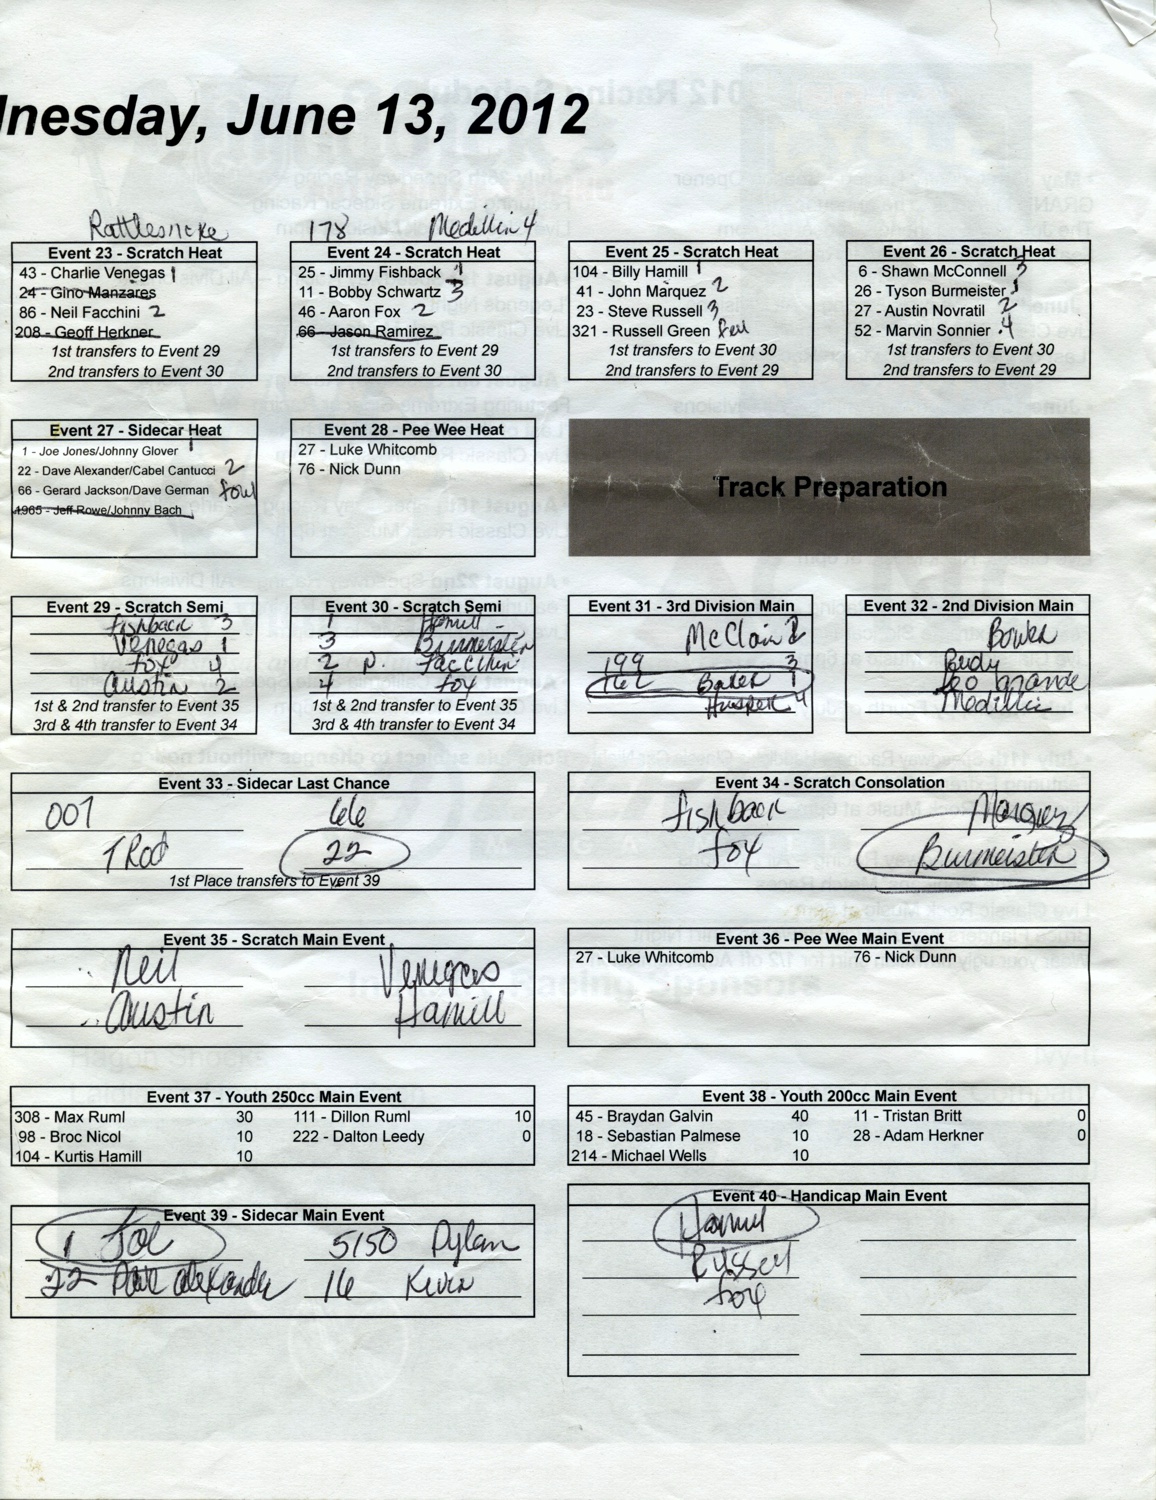 nesday, June 13, 2012
Rattlesnake 178 Medellin 4
Event 23 - Scratch Heat
43 - Charlie Venegas 1
24 - Gino Manzares
86 - Neil Facchini 2
208 - Geoff Herkner
1st transfers to Event 29
2nd transfers to Event 30
Event 24 - Scratch Heat
25 - Jimmy Fishback 1
11 - Bobby Schwartz 3
46 - Aaron Fox 2
66 - Jason Ramirez
1st transfers to Event 29
2nd transfers to Event 30
Event 25 - Scratch Heat
104 - Billy Hamill 1
41 - John Marquez 2
23 - Steve Russell 3
321 - Russell Green
1st transfers to Event 30
2nd transfers to Event 29
Event 26 - Scratch Heat
6 - Shawn McConnell 3
26 - Tyson Burmeister 1
27 - Austin Novratil 2
52 - Marvin Sonnier 4
1st transfers to Event 30
2nd transfers to Event 29
Event 27 - Sidecar Heat
1 - Joe Jones/Johnny Glover 1
22 - Dave Alexander/Cabel Cantucci 2
66 - Gerard Jackson/Dave German foul
1965 - Jeff Rowe/Johnny Bach
Event 28 - Pee Wee Heat
27 - Luke Whitcomb
76 - Nick Dunn
Track Preparation
Event 29 - Scratch Semi
Fishback 3
Venegas 1
Fox 4
Austin 2
1st & 2nd transfer to Event 35
3rd & 4th transfer to Event 34
Event 30 - Scratch Semi
1 Hamill
3 Burmeister
2 N Facchini
4 Fox
1st & 2nd transfer to Event 35
3rd & 4th transfer to Event 34
Event 31 - 3rd Division Main
McClain 2
199 3
162 Baker 1
4
Event 32 - 2nd Division Main
Bowen
Rudy
Leo Grande
Medellin
Event 33 - Sidecar Last Chance
007 66
TRod 22
1st Place transfers to Event 39
Event 34 - Scratch Consolation
Fishback Marquez
Fox Burmeister
Event 35 - Scratch Main Event
Neil Venegas
Austin Hamill
Event 36 - Pee Wee Main Event
27 - Luke Whitcomb 76 - Nick Dunn
Event 37 - Youth 250cc Main Event
308 - Max Ruml 30 111 - Dillon Ruml 10
98 - Broc Nicol 10 222 - Dalton Leedy 0
104 - Kurtis Hamill 10
Event 38 - Youth 200cc Main Event
45 - Braydan Galvin 40 11 - Tristan Britt 0
18 - Sebastian Palmese 10 28 - Adam Herkner 0
214 - Michael Wells 10
Event 39 - Sidecar Main Event
1 Joe 5150 Dylan
22 Dave Alexander 16 Kevin
Event 40 - Handicap Main Event
Hamill
Russell
Fox